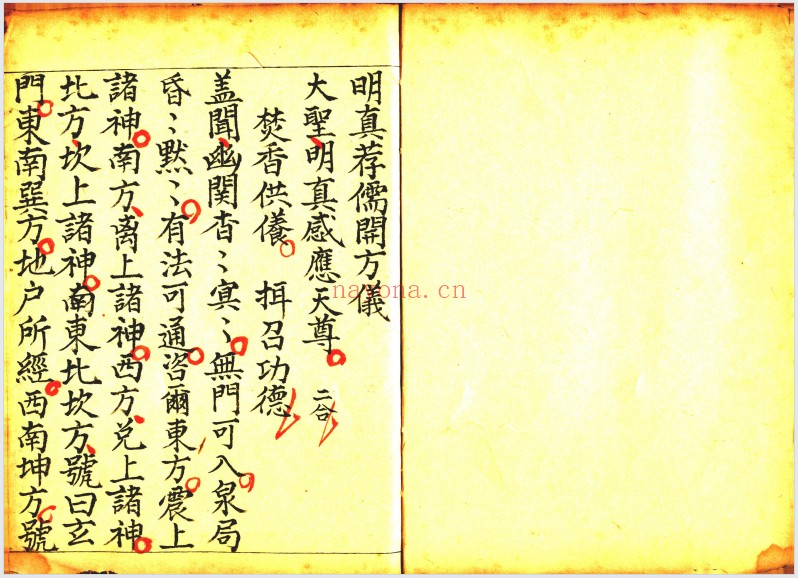 明真荐儒開方儀
大聖明真感應天尊 二合
焚香供儀 揖召功德
盖聞幽関杳〻寞〻無門可入泉局
昏〻黙〻有法可通咨爾東方震上
諸神南方离上諸神西方兑上諸神
北方坎上諸神南東北坎方號曰玄
門東南巽方地户所經西南坤方號
nayona.cn